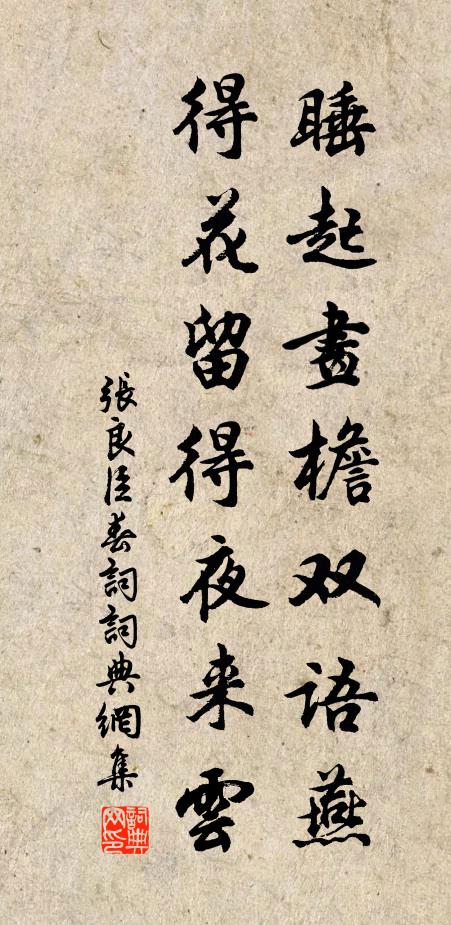 睡起畫檐双语燕
得花留得夜来雲
張良臣春詞詞典網集
詞典网印